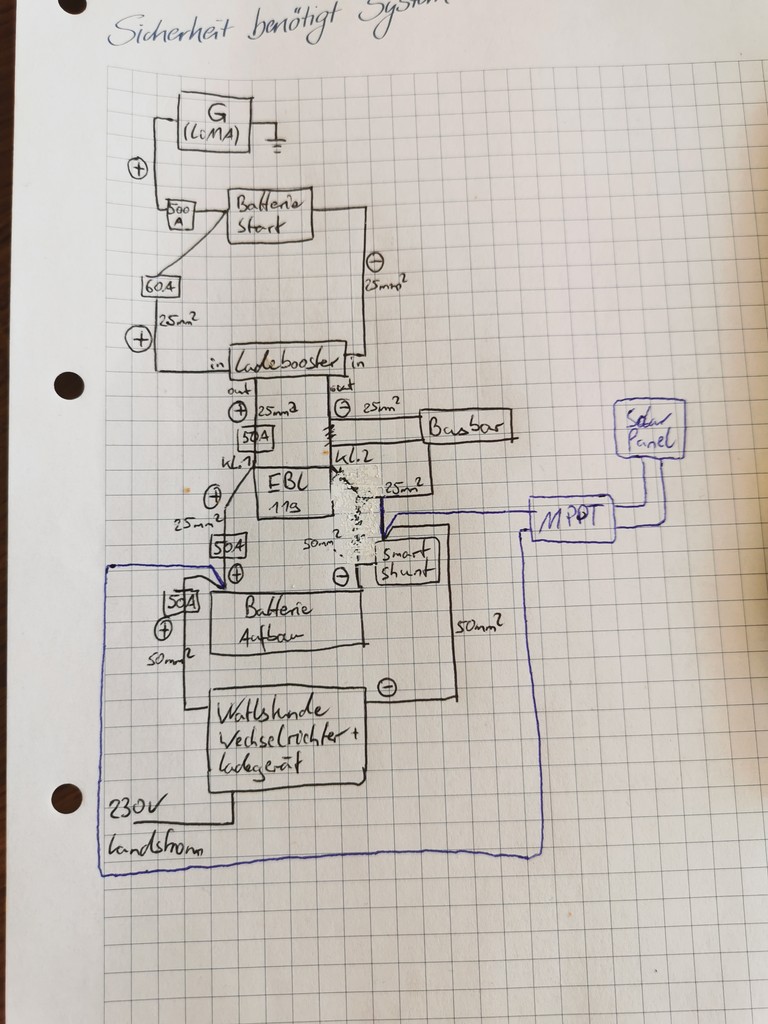 Sicherheit benötigt System
G
(LiMA)
+
500
A
Batterie
Start
-
25mm²
60A
25mm²
+
in
Ladebooster
in
out
out
+
25mm²
-
25mm²
50A
Busbar
Kl.1
Kl.2
EBL
119
25mm²
+
25mm²
50A
50mm²
Smart
shunt
Solar
Panel
MPPT
+
-
50A
+
50mm²
Batterie
Aufbau
50mm²
-
Wattstunde
Wechselrichter +
Ladegerät
230V
Landstrom